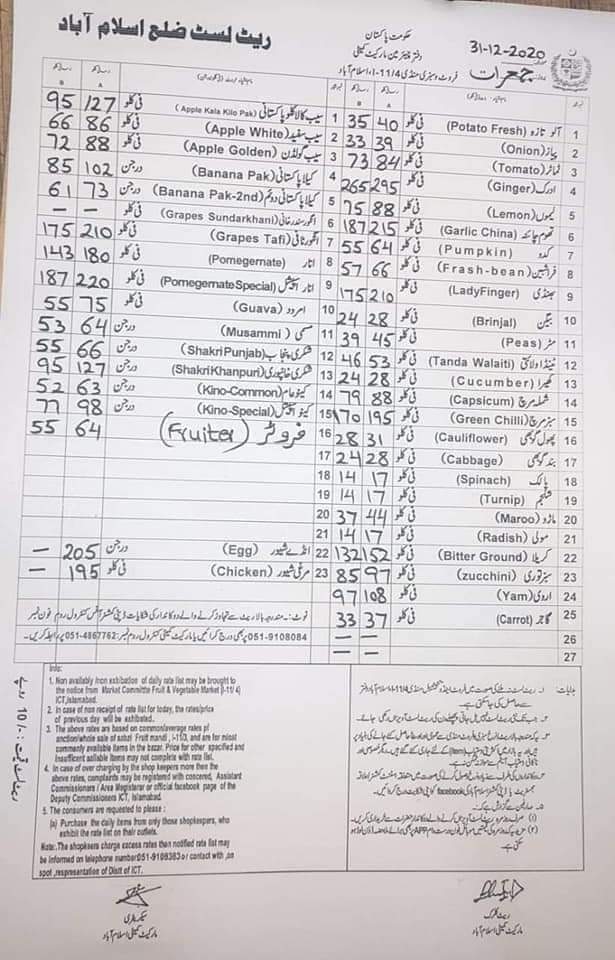 ریٹ لسٹ ضلع اسلام آباد
حکومت پاکستان
دفتر چیئرمین مارکیٹ کمیٹی
فروٹ و سبزی منڈی I-11/4، اسلام آباد
31-12-2020
جمعرات
B A
95 127 فی کلو سیب کالا کلو پاکستانی (Apple Kala Kilo Pak) 1
66 86 فی کلو سیب سفید (Apple White) 2
72 88 فی کلو سیب گولڈن (Apple Golden) 3
85 102 درجن کیلا پاکستانی (Banana Pak) 4
61 73 درجن کیلا پاکستانی دوئم (Banana Pak-2nd) 5
– – فی کلو انگور سندرخانی (Grapes Sundarkhani) 6
175 210 فی کلو انگور ٹافی (Grapes Tafi) 7
143 180 فی کلو انار (Pomegernate) 8
187 220 فی کلو انار اسپیشل (Pomegernate Special) 9
55 75 فی کلو امرود (Guava) 10
53 64 درجن مسمی (Musammi) 11
55 66 درجن شکری پنجاب (Shakri Punjab) 12
95 127 درجن شکری خانپوری (Shakri Khanpuri) 13
52 63 درجن کینو عام (Kino-Common) 14
77 98 درجن کینو اسپیشل (Kino-Special) 15
55 64 فروٹر (Fruiter) 16
17
18
19
20
21
– 205 درجن انڈے شیور (Egg) 22
– 195 فی کلو مرغی شیور (Chicken) 23
B A
35 40 فی کلو آلو تازہ (Potato Fresh) 1
33 39 فی کلو پیاز (Onion) 2
73 84 فی کلو ٹماٹر (Tomato) 3
265 295 فی کلو ادرک (Ginger) 4
75 88 فی کلو لیموں (Lemon) 5
187 215 فی کلو تھوم چائنہ (Garlic China) 6
55 64 فی کلو کدو (Pumpkin) 7
57 66 فی کلو فراشبین (Frash-bean) 8
175 210 فی کلو بھنڈی (LadyFinger) 9
24 28 فی کلو بینگن (Brinjal) 10
39 45 فی کلو مٹر (Peas) 11
46 53 فی کلو ٹینڈا ولائتی (Tanda Walaiti) 12
24 28 فی کلو کھیرا (Cucumber) 13
79 88 فی کلو شملہ مرچ (Capsicum) 14
170 195 فی کلو سبز مرچ (Green Chilli) 15
28 31 فی کلو پھول گوبھی (Cauliflower) 16
24 28 فی کلو بند گوبھی (Cabbage) 17
14 17 فی کلو پالک (Spinach) 18
14 17 فی کلو شلجم (Turnip) 19
37 44 فی کلو مارو (Maroo) 20
14 17 فی کلو مولی (Radish) 21
132 152 فی کلو کریلا (Bitter Ground) 22
85 97 فی کلو سبز توری (zucchini) 23
97 108 فی کلو اروی (Yam) 24
33 37 فی کلو گاجر (Carrot) 25
– – 26
– – 27
نوٹ:۔ مندرجہ بالا ریٹ سے تجاوز کرنے والے دوکانداروں کی شکایات ڈپٹی کمشنر آفس کنٹرول روم فون نمبر
051-9108084 پر بھی درج کرائیں یا مارکیٹ کمیٹی کنٹرول روم نمبر: 051-4867762 پر رابطہ کریں۔
ریٹ لسٹ قیمت : 10/- روپے
Info:
1. Non availably from exhibation of daily rate list may be brought to
the notice from Market Committe Fruit & Vegetable Market (I-11/4)
ICT,Islamabad.
2. In case of non receipt of rate list for today, the rates/price
of previous day will be exhibated.
3. The above rates are based on common/average rates of
anction/whole sale of sabzi Fruit mandi , i-11/3, and are for misst
commonly available items in the bazar. Price for other specified and
Insufficent aailable items may not complete with rate list.
4. In case of over charging by the shop keepers more then the
above rates, complaints may be registered with concered, Assistant
Commissionars / Area Megisterar or official facebook page of the
Deputy Commissioners ICT, Islamabad.
5. The consumers are requested to please :
(a) Purchase the daily items from only those shopkeepers, who
exhibit the rate list on their outlets.
Note:.The shopkeers charge excess rates then notified rate list may
be informed on telephone number051-9108383 or contact with ,on
spot ,respresentation of Disst of ICT.
ہدایات:
سیکرٹری
مارکیٹ کمیٹی اسلام آباد
ریٹ کلرک
مارکیٹ کمیٹی اسلام آباد